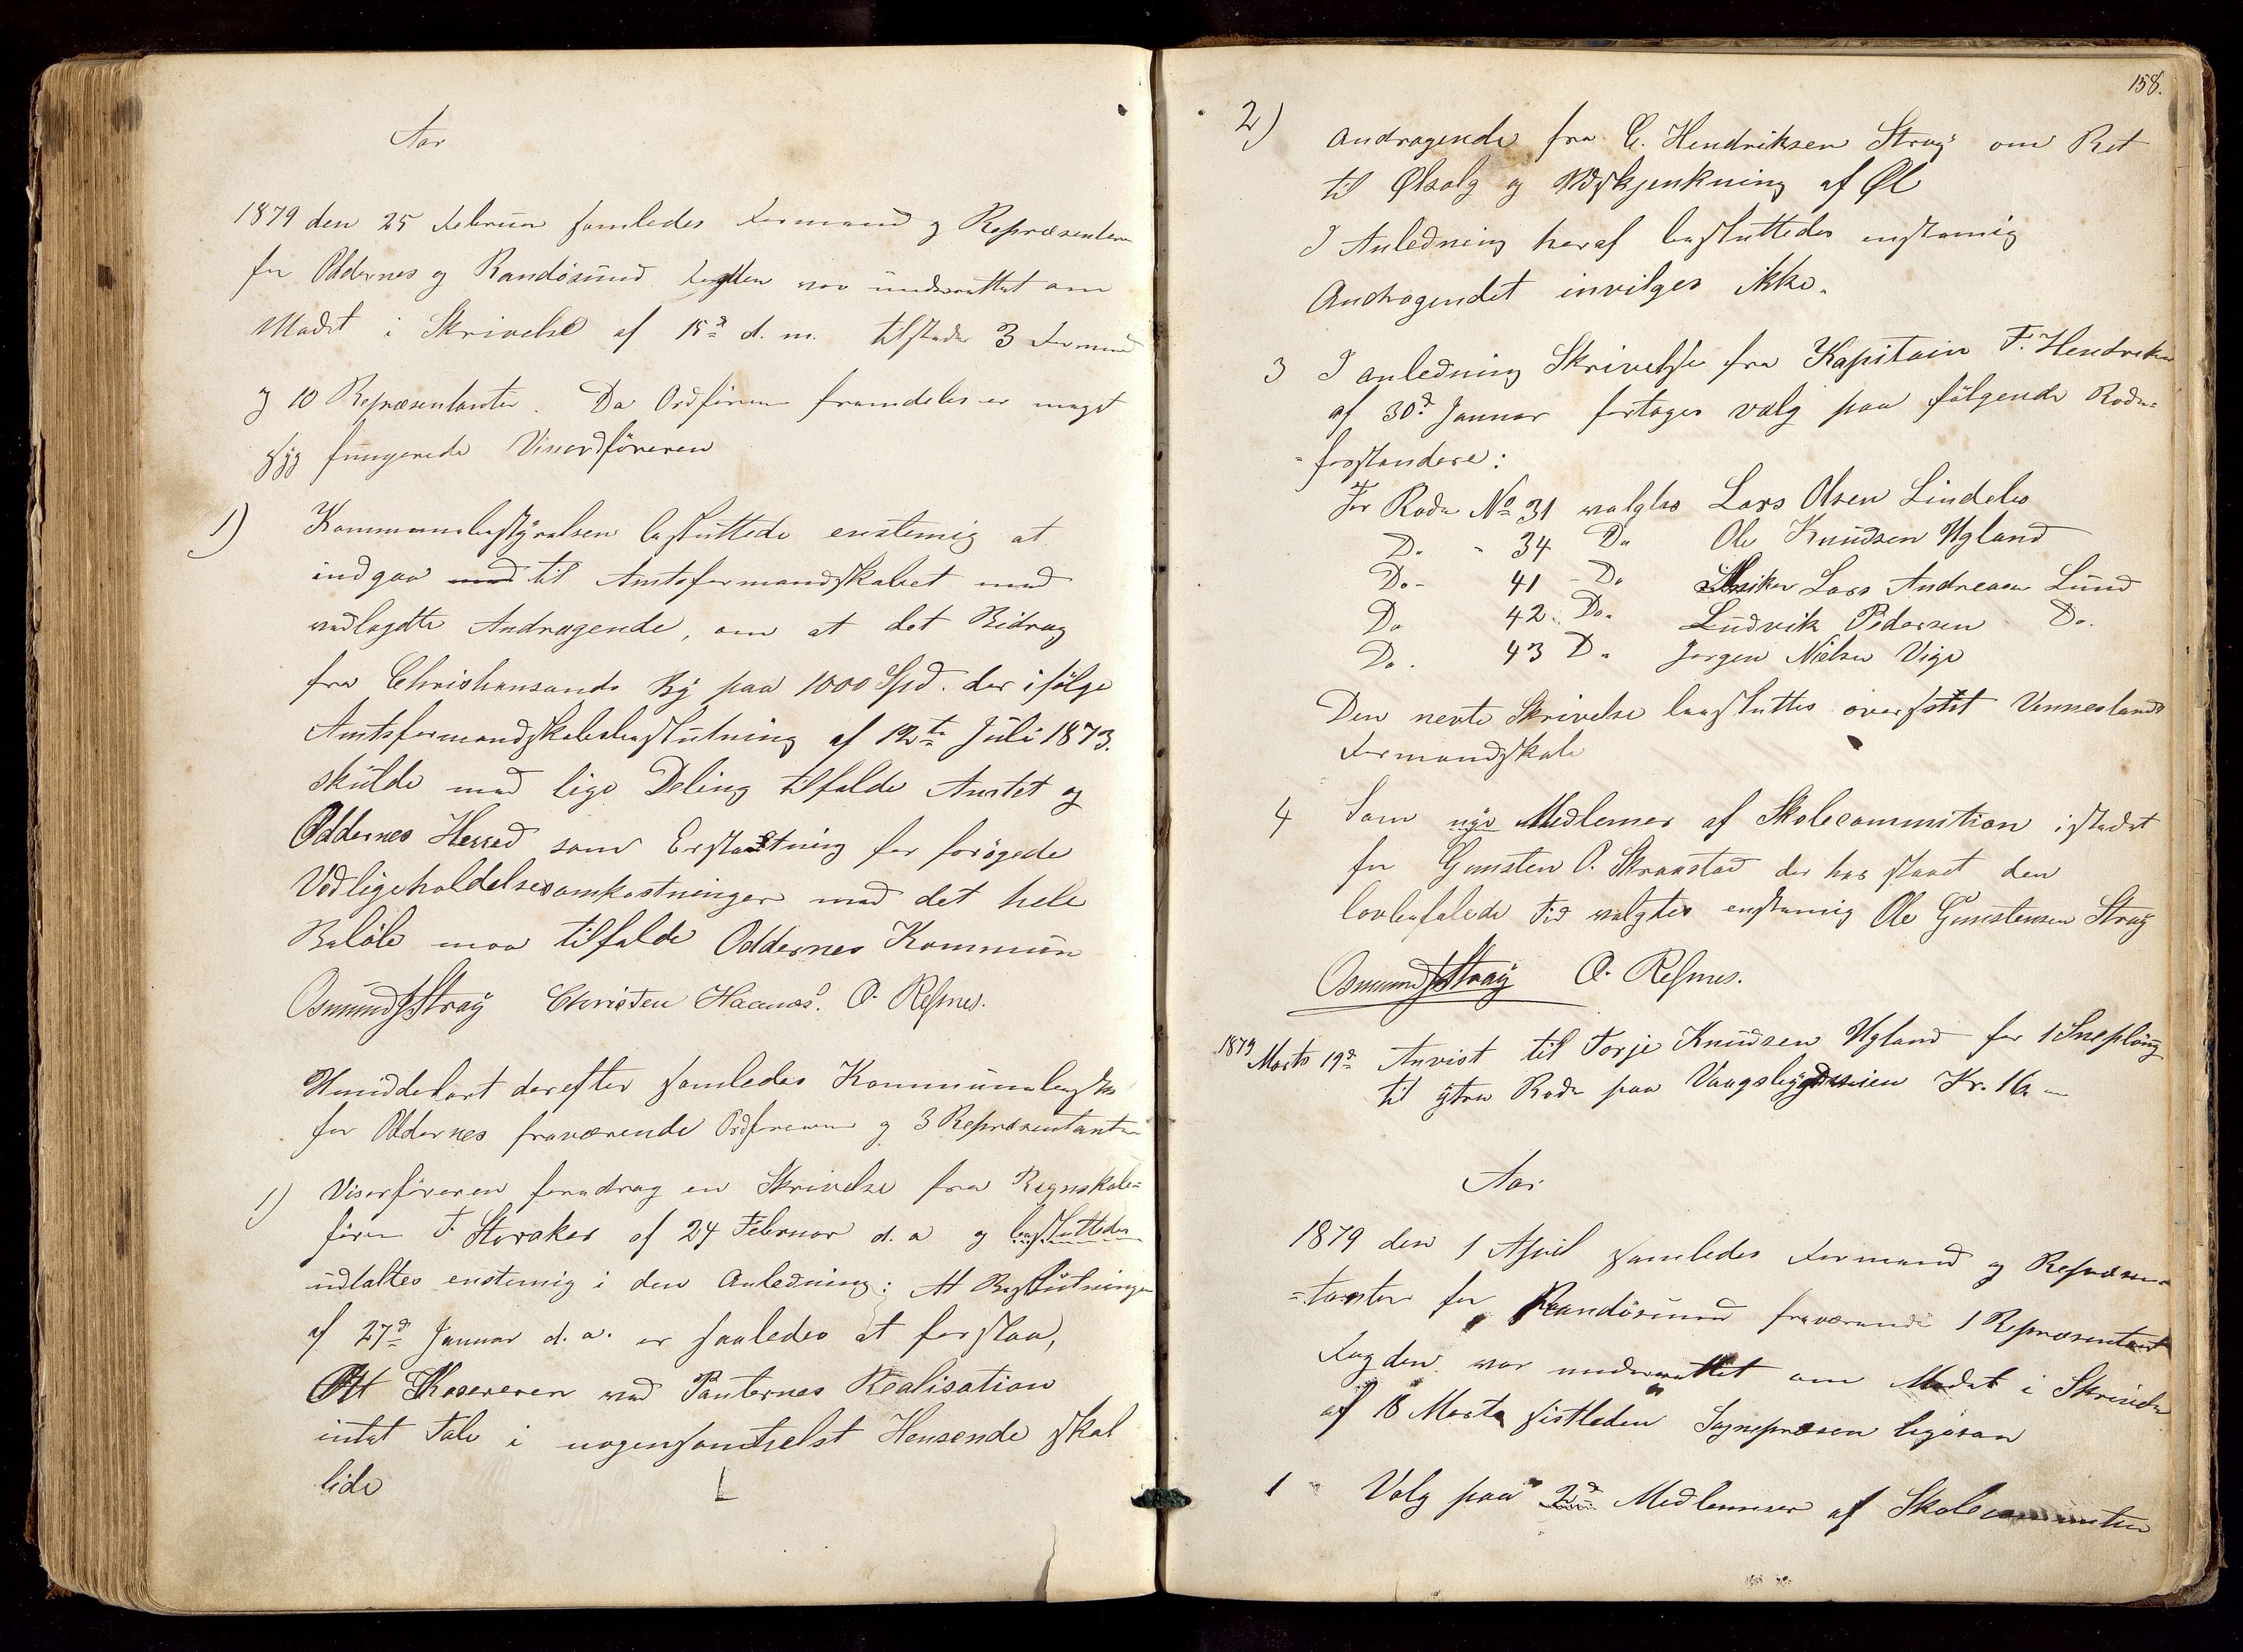 Aar
1879 den 25 Februar samledes Formænd og Repræsentere
for Oddernes og Randøsund Fogden var underrettet om
Mødet i Skrivelse af 15d d. m. tilstede 3 Formænd
og 10 Repræsentanter. Da Ordføreren fremdeles er meget
syg fungerede Viseordføreren
1) Kommunebestyrelsen besluttede enstemig at
indgaa med til Amtsformandskabet med
vedlagdte Andragende, om at det Bidrag
fra Christiansands By paa 1000 Spd. der ifølge
Amtsformandskabsbeslutning af 12te Juli 1873.
skulde med lige Deling tilfalde Amtet og
Oddernes Herred som Erstatning for forøgede
Vedligeholdelsesomkostninger med det hele
Beløb maa tilfalde Oddernes Kommun
Osmund Stray Christen Haanes. O. Refsnes.
Umiddelbart derefter samledes Kommunebestyr
for Oddernes fraværende Ordføreren og 3 Repræsentanter
1) Viseorføreren foredrag en Skrivelse fra Regnskabs=
fører F. Storaker af 24 Februar d. a og besluttedes
udtaltes enstemig i den Anledning: At Beslutningen
af 27d Januar d. a. er saaledes at forstaa,
At Kasereren ved Panternes Realisation
intet Tab i nogensomhelst Henseende skal
lide
158.
2) Andragende fra C. Hendriksen Stray om Ret
til Ølsalg og Udskjenkning af Øl
I Anledning heraf besluttedes enstemig
Andragendet invilges ikke.
3 I anledning Skrivelse fra Kapitain F. Hendriksen
af 30d Januar fortages valg paa følgende Rode=
=forstandere:
For Rode No 31 valgtes Lars Olsen Lindebo
Do " 34 Do Ole Knudsen Ugland
Do - 41 - Do Lars Andreasen Lund
Do 42. Do. Ludvik Pedersen Do.
Do. 43 Do Jørgen Nielsen Vige
Den nevte Skrivelse besluttes oversent Venneslands
Formandskab
4 Som nye Medlemer af Skolecommition istedet
for Gunsten O. Straastad der har staaet den
lovbefalede Tid valgtes enstemig Ole Gunstensen Stray
Osmund Stray O. Refsnes.
1879 Marts 19d Anvist til Torje Knudsen Ugland for 1 Sneplong
til ytre Rode paa Vaagsbygdveien Kr. 16 -
Aar
1879 den 1 April samledes Formænd og Repræsen
=tanter for Randøsund fraværende 1 Repræsentant
Fogden var underrettet om Mødet i Skrivelse
af 18 Marts sistleden Sognepræsen ligesaa
1 Valg paa 2d Medlemmer af Skolecommition